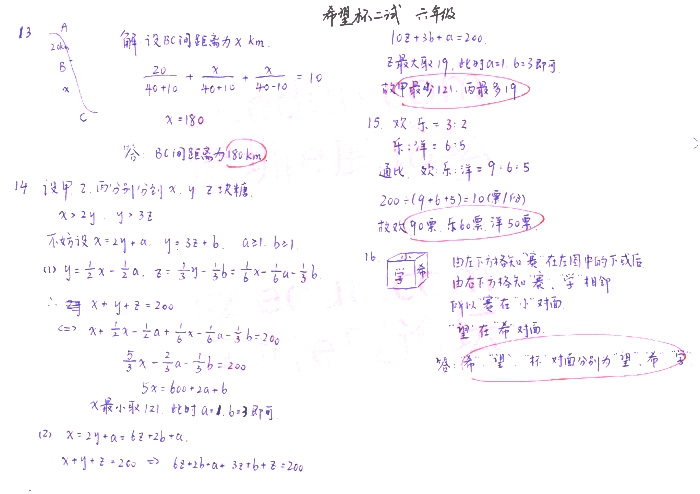 希望杯二试 六年级
13
A
20km
B
x
C
解 设BC间距离为x km.
20/(40+10) + x/(40+10) + x/(40-10) = 10
x=180
答: BC间距离为180km.
14 设甲乙丙分别分到x、y z 块糖.
x>2y、y>3z
不妨设 x=2y+a、y=3z+b、a≥1. b≥1.
(1) y=1/2x-1/2a、z=1/3y-1/3b=1/6x-1/6a-1/3b
∴ x+y+z=200
<=> x+1/2x-1/2a+1/6x-1/6a-1/3b=200
5/3x-2/3a-1/3b=200
5x=600+2a+b
x最小取121. 此时a=1. b=3即可
(2) x=2y+a=6z+2b+a.
x+y+z=200 => 6z+2b+a+3z+b+z=200
10z+3b+a=200.
z最大取19, 此时a=1. b=3即可.
故甲最少121. 丙最多19
15. 欢:乐=3:2
乐:洋=6:5
通比, 欢:乐:洋=9:6:5
200÷(9+6+5)=10(票/份)
故欢90票. 乐60票. 洋50票.
16
学 希
由左下方格知"赛"在左图中的下或后
由右下方格知"赛"、"学"相邻
所以"赛"在"小"对面
"望"在希对面.
答: "希"、"望"、"杯"对面分别为"望"、"希"、"学"